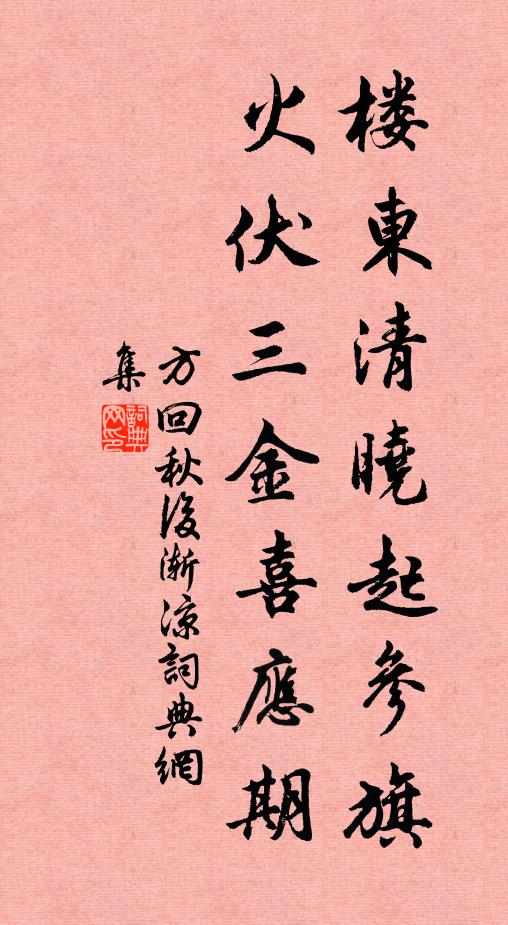 楼東清曉起參旗
火伏三金喜應期
方回秋後漸涼詞典網
集
詞典網印